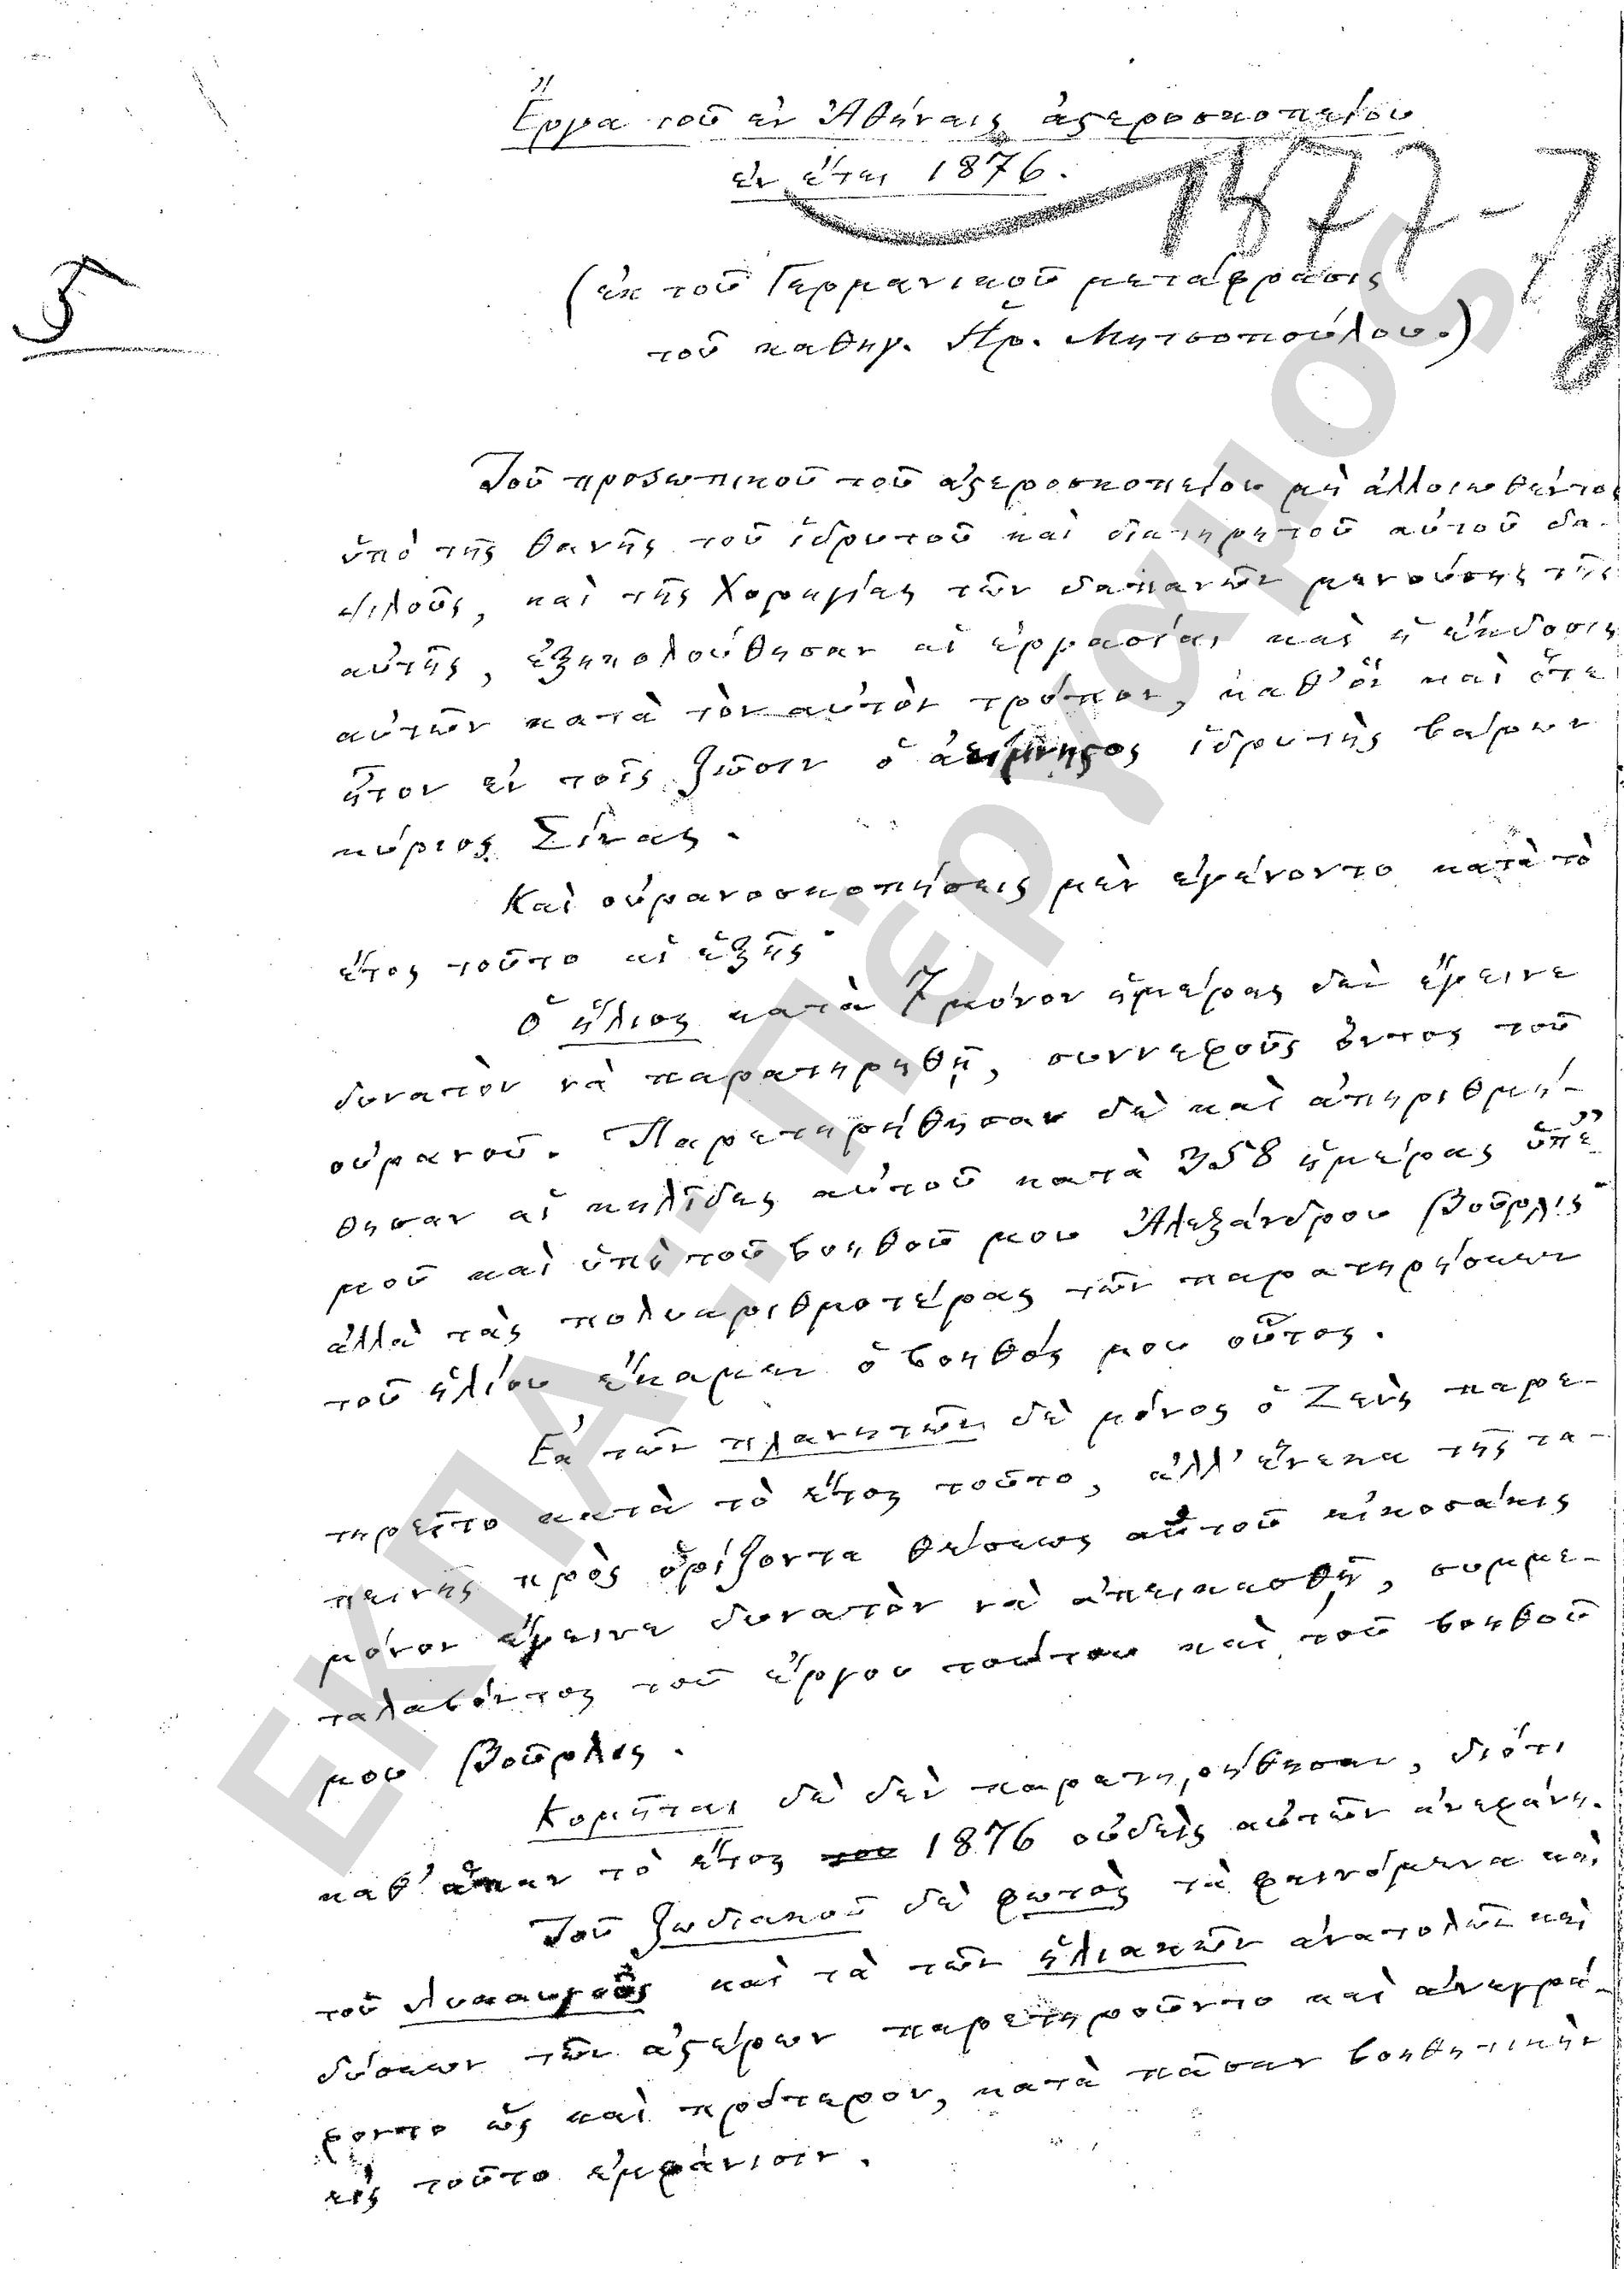 Ἔργα τοῦ ἐν Ἀθήναις ἀστεροσκοπείου
ἐν ἔτει 1876.
1877-78
5
(ἐκ τοῦ Γερμανικοῦ μετάφρασις
τοῦ καθηγ. Ἡρ. Μητσοπούλου.)
Τοῦ προσωπικοῦ τοῦ ἀστεροσκοπείου μὴ ἀλλοιωθέντος
ὑπὸ τῆς θανῆς τοῦ ἱδρυτοῦ καὶ διατηρητοῦ αὐτοῦ δα-
ψιλοῦς, καὶ τῆς χορηγίας τῶν δαπανῶν μενούσης τῆς
αὐτῆς, ἐξηκολούθησαν αἱ ἐργασίαι καὶ ἡ ἔκδοσις
αὐτῶν κατὰ τὸν αὐτὸν τρόπον, καθ' ὃν καὶ ὅτε
ἦτον ἐν τοῖς ζῶσιν ὁ ἀείμνηστος ἱδρυτὴς βαρων
κύριος Σίνας.
Καὶ οὐρανοσκοπήσεις μὲν ἐγένοντο κατὰ τὸ
ἔτος τοῦτο αἱ ἑξῆς·
Ὁ ἥλιος κατὰ 7 μόνον ἡμέρας δὲν ἔμεινε
δυνατὸν νὰ παρατηρηθῇ, συννεφοῦς ὄντος τοῦ
οὐρανοῦ. Παρετηρήθησαν δὲ καὶ ἀπηριθμή-
θησαν αἱ κηλῖδες αὐτοῦ κατὰ 358 ἡμέρας ὑπ' ἐ-
μοῦ καὶ ὑπὸ τοῦ βοηθοῦ μου Ἀλεξάνδρου Βοῦρλις·
ἀλλὰ τὰς πολυαριθμοτέρας τῶν παρατηρήσεων
τοῦ ἡλίου ἔκαμεν ὁ βοηθός μου οὗτος.
Ἐκ τῶν πλανητῶν δὲ μόνος ὁ Ζεὺς παρε-
τηρεῖτο κατὰ τὸ ἔτος τοῦτο, ἀλλ' ἕνεκα τῆς τα-
πεινῆς πρὸς ὁρίζοντα θέσεως αὐτοῦ εἰκοσάκις
μόνον ἔμεινε δυνατὸν νὰ ἀπεικασθῇ, συμμε-
ταλαβόντος τοῦ ἔργου τούτου καὶ τοῦ βοηθοῦ
μου Βοῦρλις.
Κομῆται δὲ δὲν παρετηρήθησαν, διότι
καθ' ἅπαν τὸ ἔτος του 1876 οὐδεὶς αὐτῶν ἀνεφάνη.
Τοῦ ζωδιακοῦ δὲ φωτὸς τὰ φαινόμενα καὶ
τοῦ λυκαυγοῦς καὶ τὰ τῶν ἡλιακῶν ἀνατολῶν καὶ
δύσεων τῶν ἀστέρων παρετηροῦντο καὶ ἀνεγρά-
φοντο ὡς καὶ πρότερον, κατὰ πᾶσαν βοηθητικὴν
εἰς τοῦτο ἐμφάνισιν.
ΕΚΠΑ::Πέργαμος